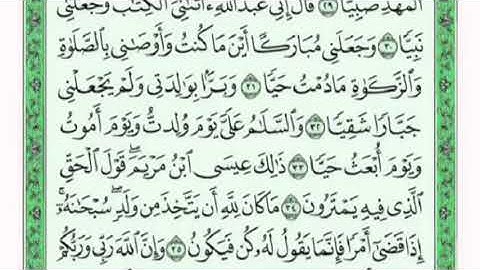 الْمَهْدِ صَبِيًّا ٢٩ قَالَ إِنِّي عَبْدُ اللَّهِ ءَاتَىٰنِيَ الْكِتَٰبَ وَجَعَلَنِي
نَبِيًّا ٣٠ وَجَعَلَنِي مُبَارَكًا أَيْنَ مَا كُنتُ وَأَوْصَٰنِي بِالصَّلَوٰةِ
وَالزَّكَوٰةِ مَا دُمْتُ حَيًّا ٣١ وَبَرًّا بِوَٰلِدَتِي وَلَمْ يَجْعَلْنِي
جَبَّارًا شَقِيًّا ٣٢ وَالسَّلَٰمُ عَلَيَّ يَوْمَ وُلِدتُّ وَيَوْمَ أَمُوتُ
وَيَوْمَ أُبْعَثُ حَيًّا ٣٣ ذَٰلِكَ عِيسَى ابْنُ مَرْيَمَ ۚ قَوْلَ الْحَقِّ
الَّذِي فِيهِ يَمْتَرُونَ ٣٤ مَا كَانَ لِلَّهِ أَن يَتَّخِذَ مِن وَلَدٍ ۖ سُبْحَٰنَهُۥٓ ۚ
إِذَا قَضَىٰٓ أَمْرًا فَإِنَّمَا يَقُولُ لَهُۥ كُن فَيَكُونُ ٣٥ وَإِنَّ اللَّهَ رَبِّي وَرَبُّكُمْ